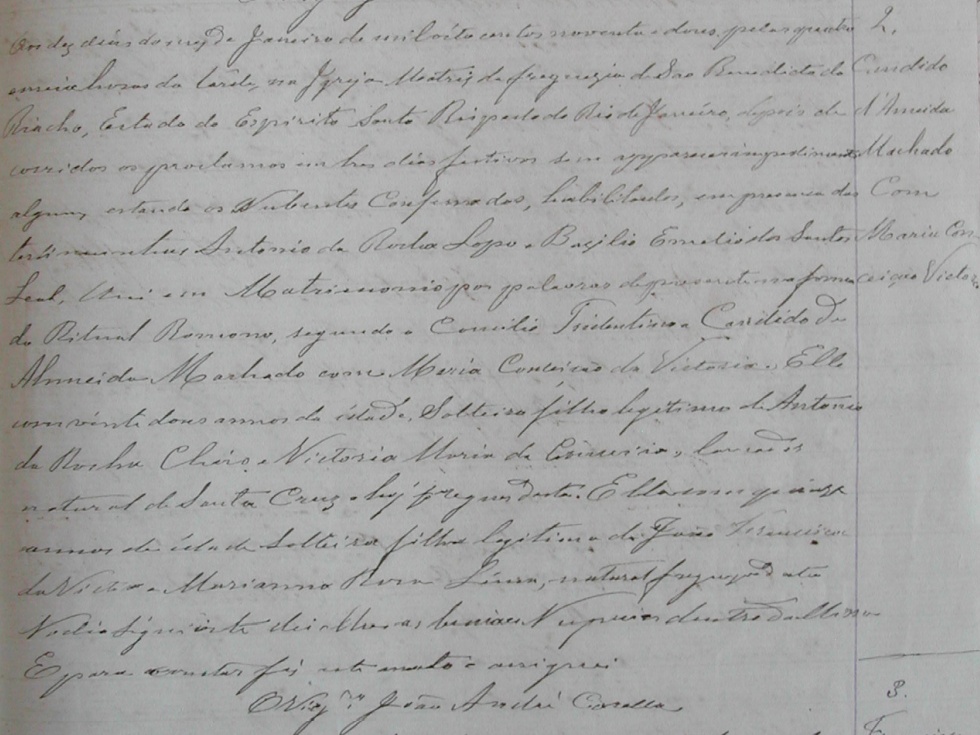 Aos dez dias do mez de Janeiro de mil oito centos noventa e dous, pelas quatro
e meia horas da tarde, na Igreja Matriz da freguezia de São Benedicto do
Riacho, Estado do Espirito Santo Bispado do Rio de Janeiro, depois de
corridos os proclamos em tres dias festivos sem apparecer impedimento
algum, estando os Nubentes Confessados, habilitados, em presença das
testimunhas Antonio da Rocha Lopo e Bazilio Emelio dos Santos
Leal, Uni em Matrimonio por palavras de presente na forma
do Ritual Romono, segundo o Concilio Tridentino a Candido de
Almeida Machado com Maria Conceicão da Victoria. Elle
com vinte dous annos da idade, Solteiro filho legitimo de Antonio
da Rocha e Victoria Maria da lavrador
natural de Santa Cruz e freguez desta. Ella com quinze
annos de idade Solteira filha legitima de João Francisco
da Victoria e Marianna Rosa natural fregueza desta
No dia siguinte dei lhes as bençãos Nupciais dentro da Missa
E para constar fiz este assento e assignei
O Vigr.º João André Casella
2.
Candido
d'Almeida
Machado
Com
Maria Con
ceição Victoria
3.